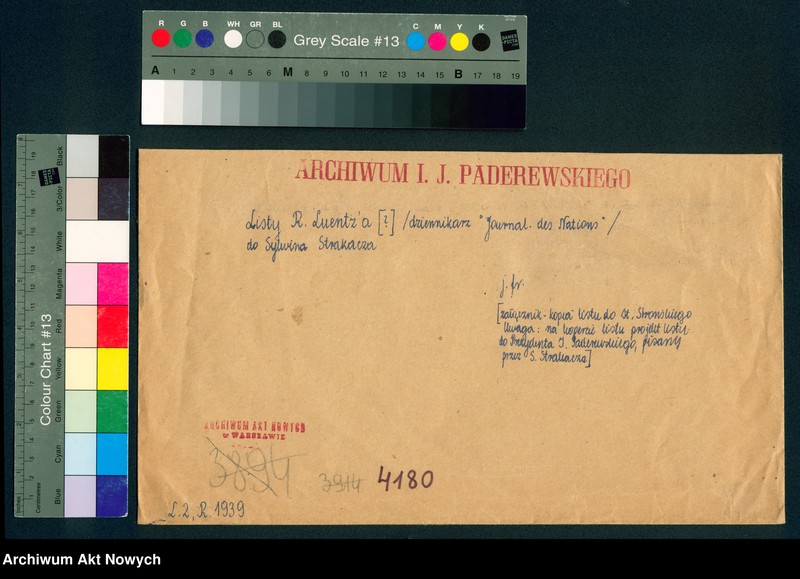 R G B WH GR BL Grey Scale #13 C M Y K
A 1 2 3 4 5 6 M 8 9 10 11 12 13 14 15 B 17 18 19
Colour Chart #13
Blue Cyan Green Yellow Red Magenta White 3/Color Black
ARCHIWUM I. J. PADEREWSKIEGO
Listy R. Luentz'a [?] /dziennikarz "Journal des Nations"/
do Sylwina Strakacza
j. fr.
[załącznik - kopia listu do St. Strońskiego
Uwaga: na kopercie listu projekt listu
do Prezydenta I. Paderewskiego, pisany
przez S. Strakacza]
ARCHIWUM AKT NOWYCH
w WARSZAWIE
3894
3914 4180
L. 2, R. 1939
Archiwum Akt Nowych